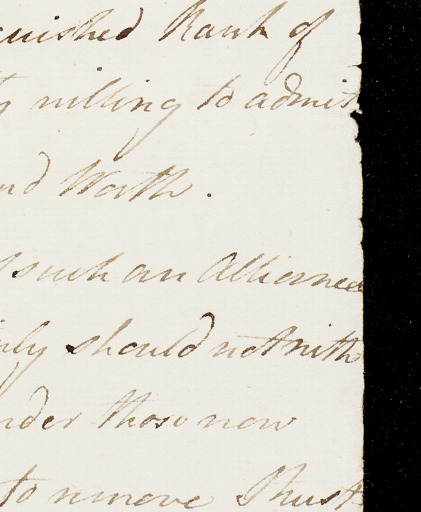 uished Rank of
willing to admit
nd Worth.
such an Alliance
nly should not with
nder those now
to remove I trust